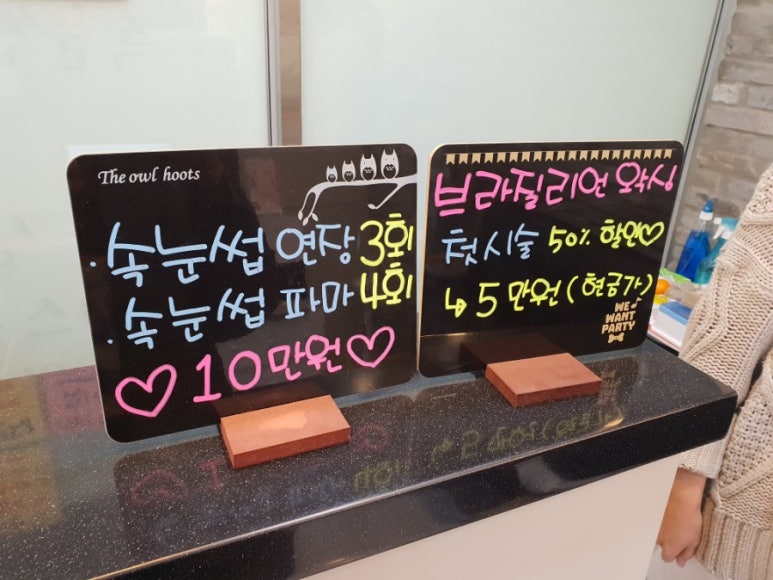 The owl hoots
· 속눈썹 연장 3회
· 속눈썹 파마 4회
♡ 10만원 ♡
브라질리언 왁싱
첫시술 50% 할인♡
↳ 5만원 (현금가)
WE
WANT
PARTY